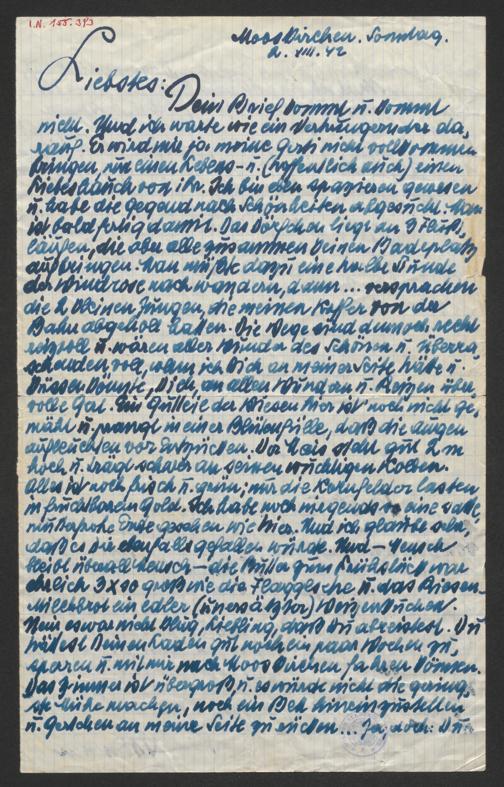 I.N. 155.393
Mooskirchen. Sonntag.
2. VIII. 42
Liebstes:
Dein Brief kommt u. kommt
nicht. Und ich warte wie ein Verhungernder da,
rauf. Er wird mir ja meine nicht vollkommen
bringen, um einen Lebens- u. (hoffentlich auch) einen
Liebeshauch von ihr. Ich bin eben spazieren gewesen
u. habe die Gegend nach Schönheiten abgesucht. Man
ist bald fertig damit. Das Dörfchen liegt an 3 Fluß,
läufen, die aber alle zusammen keinen Badeplatz
aufbringen. Man müßte dazu eine halbe Stunde
der Windrose nach wandern, dann ... versprachen
die 2 kleinen Jungen, die meinen Koffer von der
Bahn abgeholt hatten. Die Wege sind dennoch recht
reizvoll u. wären aller Wunder des Schönen u. Überra
schenden voll, wenn ich Dich an meiner Seite hätte u.
küssen könnte, Dich an allen Wundern u. Reizen über
volle Ein Gutteil der Wiesen hier ist noch nicht ge,
mäht u. prangt in einer Blütenfülle, daß die Augen
aufleuchten vor Entzücken. Der Mais steht gut 2 m
hoch u. tragt schwer an seinen wuchtigen Kolben.
Alles ist noch frisch u. grün; nur die Kornfelder lasten
in fruchtbarem Gold. Ich habe noch nirgends so eine satte,
Erde gesehen wie hier. Und ich glaube sehr,
daß es Dir ebenfalls gefallen würde. Und –
bleibt überall – die Butter zum Frühstück war
ehrlich 3 x so groß wie die u. das Riesen-
Milchbrot ein edler Weizenkuchen.
Nein es war nicht klug, Liebling, daß Du abreistest. Du
hättest Deinen gut noch ein paar Wochen zu,
sparen u. mit mir nach Moos kirchen fahren können.
Das Zimmer ist übergroß, u. es würde nicht die gering,
ste Mühe machen, noch ein Bett hineinzustellen
u. an meine Seite zu rücken ... Ja, doch: Du